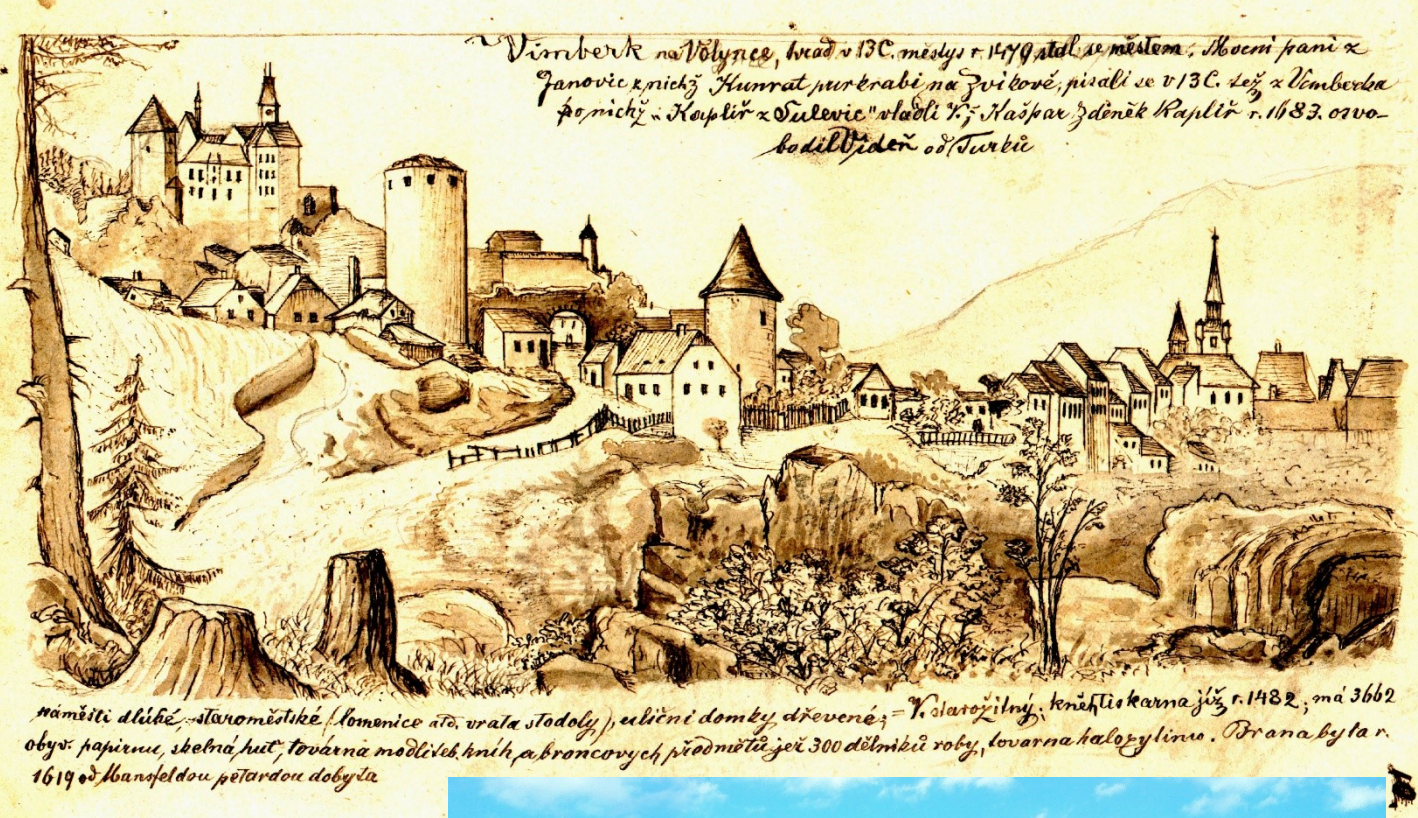 Vimberk na Volynce, hrad v 13 C. městys r. 1479 stal se městem. Mocní páni z
Janovic z nichž Kunrat purkrabí na Zvíkově, písali se v 13 C. též z Vimberka
po nichž „Kaplíř z Sulevic" vládli Kašpar Zdeněk Kaplíř r. 1683. osvo-
bodil Vídeň od Turků
náměstí dlúhé, staroměstské (lomenice atd. vrata stodoly), uliční domky dřevené; = V. starožitný; kněhtiskarna již r. 1482; má 3662
obyv. papírnu, skelná huť, továrna modliteb. knih, a broncových předmětů jež 300 dělníků robí, tovarna Brana byla r.
1619 od Mansfeldou petardou dobyta